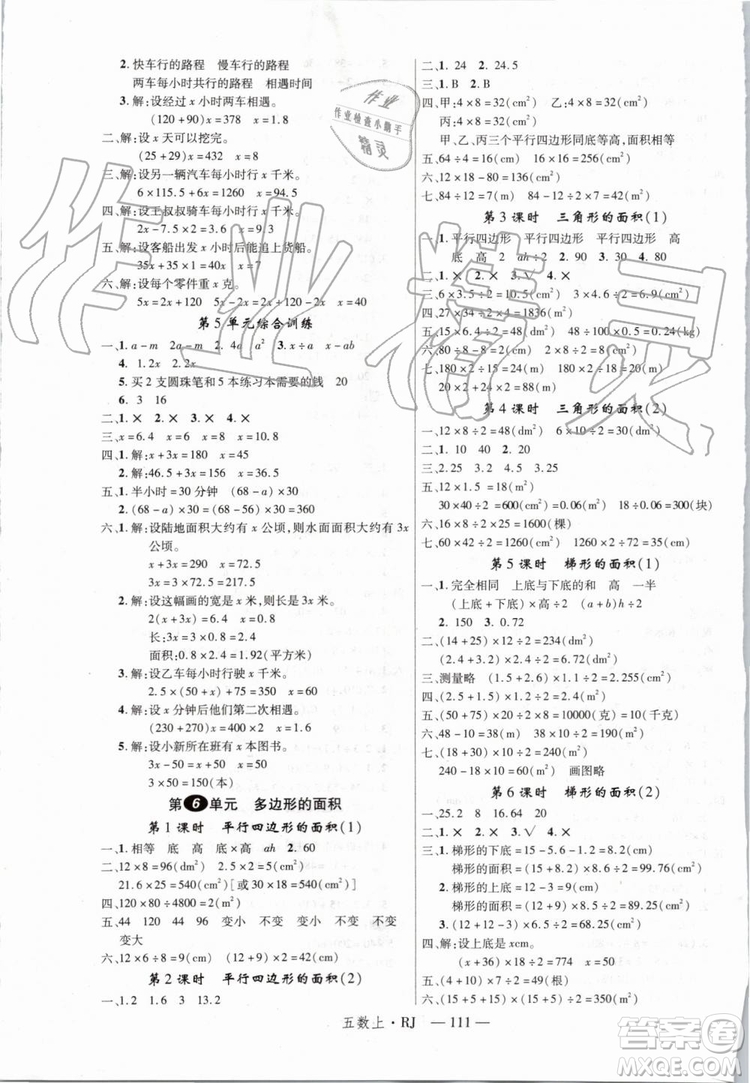 2. 快车行的路程 慢车行的路程
两车每小时共行的路程 相遇时间
3. 解:设经过 x 小时两车相遇。
(120+90)x=378 x=1.8
二、解:设 x 天可以挖完。
(25+29)x=432 x=8
三、解:设另一辆汽车每小时行 x 千米。
6×115.5+6x=1260 x=94.5
四、解:设王叔叔骑车每小时行 x 千米。
2x-7.5×2=3.6 x=9.3
五、解:设客船出发 x 小时后能追上货船。
35x=
六、解:设每个零件重 x 克。
5x=2x+120 5x-2x=120 x=40
第 5 单元综合训练
一、1. a-m 2a-m 2. a² 3. x-a x-ab
4. 1.2x 2.2x
5. 买 2 支圆珠笔和 5 本练习本需要的钱 20
6. 3 16
二、1. × 2. × 3. × 4. ×
三、x=6.4 x=8 x=6 x=10.8
四、1. 解: x=180 x=45
2. 解:46.5+3x=60 x=4.5
五、1. 半小时=30 分钟 (68-a)×30
2. (68-a)×30=(68-56)×30=360
六、1. 解:设陆地面积大约有 x 公顷,则水面面积大约有 3x
公顷。
x+3x=290 x=72.5
3x=3×72.5=217.5
2. 解:设这幅画的宽是 x 米。
2(x+2x)=4.8 x=0.8
长:3×0.8=2.4(米)
面积:0.8×2.4=1.92(平方米)
3. 解:设乙车每小时行驶 x 千米。
2.5×(50+x)=287.5 x=65
4. 解:设 x 分钟后他们第二次相遇。
(230+270)x=400×2 x=1.6
5. 解:设小新所在班有 x 本图书。
3x-50=x+50 x=50
3×50=150(本)
第 6 单元 多边形的面积
第 1 课时 平行四边形的面积(1)
一、1. 相等 底 高 底×高 ah 2. 60
二、12×8=96(cm²) 2×2.5=5(cm²)
21.6×25=540(cm²)[或 30×18=540(cm²)]
四、120×80÷2=4800(cm²)
五、44 120 44 96 变小 不变 变小 不变 不变
变大
六、12×6÷8=9(cm) (12+9)×2=42(cm)
第 2 课时 平行四边形的面积(2)
一、1. 2 1.6 3 13.2
二、1. 24 2. 24.5
三、1. B 2. B
四、甲:4×8=32(cm²) 乙:4×8=32(cm²)
丙:4×8=32(cm²)
甲、乙、丙三个平行四边形同底等高,面积相等
五、64÷4=16(cm) 16×4=64(cm²)
六、12×18-80=136(cm²)
七、84÷12=7(m) (84-12)×7=504(m²)
第 3 课时 三角形的面积(1)
一、1. 平行四边形 平行四边形 高
底 高 2 ah÷2 2. 30 4. 80
二、1. × 2. × 3. √ 4. ×
三、6×3.5÷2=10.5(cm²) 3×4÷2=6(cm²)
四、27×34÷2×4=1836(m²)
五、15×6.4÷2=48(m²) 48÷2×0.01=0.24(kg)
六、9×8÷2=36(cm²)
七、180×2÷15=24(m) 180÷15=12(m)
八、40×22÷2=440(cm²)
第 4 课时 三角形的面积(2)
一、12×8÷2=48(dm²) 6×10÷2=30(dm²)
二、1. 10 40 2. 20
三、2.25 3.6 48
五、12×1.5=18(m²)
30×40÷2=600(cm²)=0.06(m²) 18÷0.06=300(块)
六、100×32÷2=1600(棵)
七、6×2÷3=4(cm) 4×4÷2=8(cm²)
第 5 课时 梯形的面积(1)
一、1. 完全相同 上底与下底的和 高 一半
(上底+下底)×高÷2 (a+b)h÷2
2. 150 3. 0.72
二、(14+25)×12÷2=234(dm²)
(2.4+3.2)×4.5÷2=12.6(m²)
三、测量略 (2.5+1.5)×2÷2=4(cm²)
四、(2.5+1.5)×1.2÷2=2.4(m²)
五、(50+75)×160÷2=10000(克)=10(千克)
六、48-10=38(m) 38×10÷2=190(m²)
七、(18+30)×10÷2=240(m²)
240-18×10÷2=150(m²) 画图略
第 6 课时 梯形的面积(2)
一、25.2 8 16.64 20
二、1. × 2. × 3. √ 4. ×
三、1. 梯形的下底=15-5.6-1.2=8.2(cm)
梯形的面积=(15+8.2)×5.6÷2=64.96(cm²)
2. 梯形的上底=12-1.5=10.5(cm)
梯形的面积=(10.5+12)×8÷2=90(cm²)
3. (12+12-3)×6.5÷2=68.25(cm²)
四、解:设上底是 xcm。
(x+36)×20÷2=480 x=12
五、(4+10)×7÷2=49(根)
六、(15-2+15)×12÷2=168(m²)
五数上·RJ — 111 —
作业
作业检查小帮手
精灵
作业精灵
答案圈
MXQE.COM